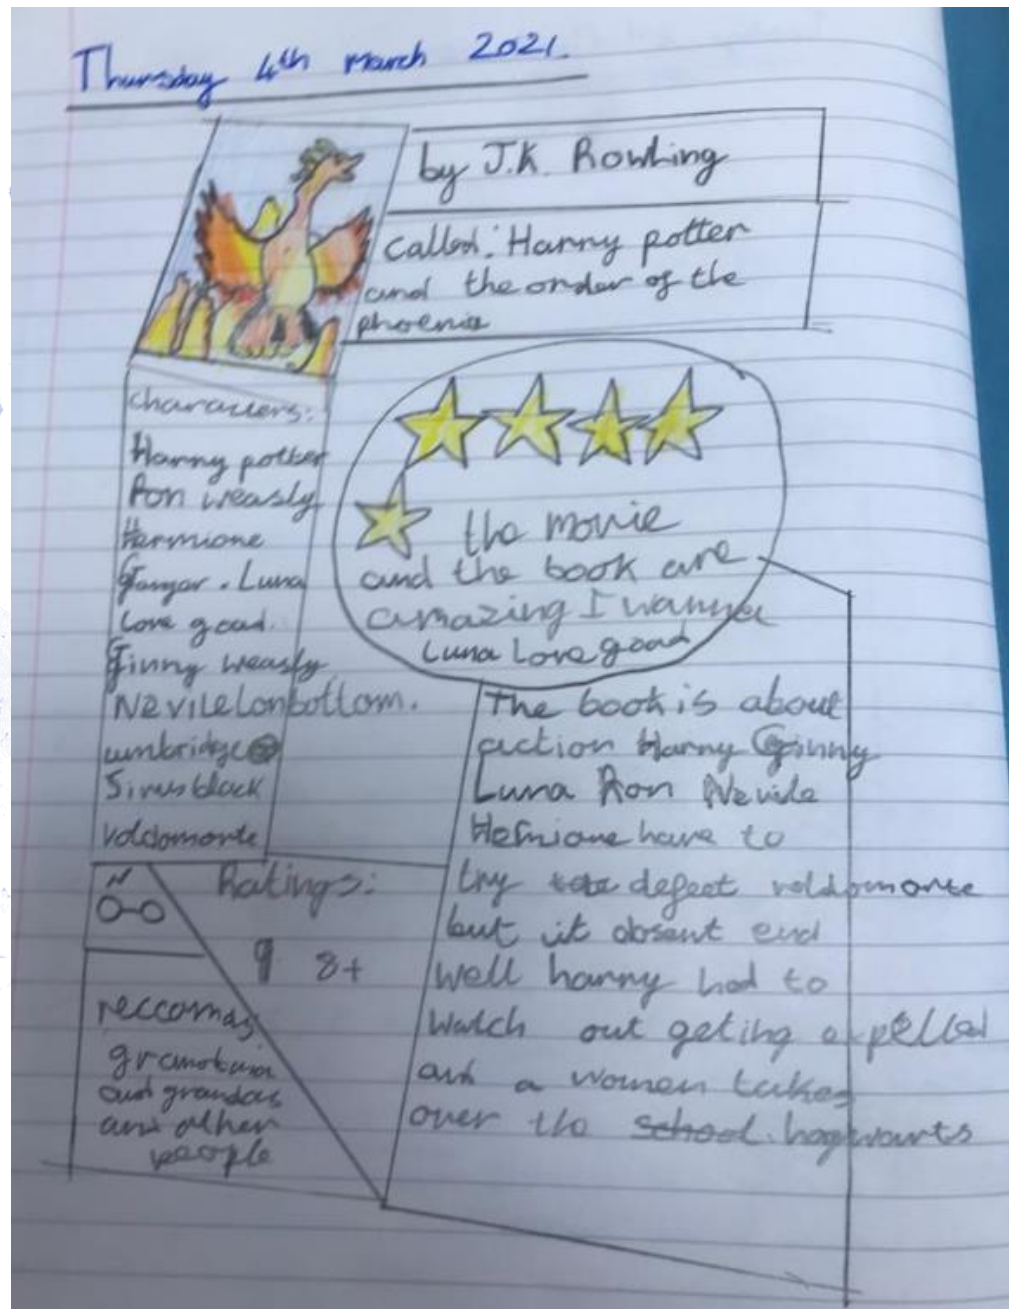 Thursday 4th March 2021.
by J.K. Rowling
called: Harry potter
and the order of the
phoenix
characters:
Harry potter
Ron weasly
Hermione
Luna
Love good.
Ginny weasly
NevileLonbottom.
umbridge
Sirusblack
Voldomorte
the movie
and the book are
amazing I wanna
Luna Lovegood
The book is about
action Harry Ginny
Luna Ron Nevile
Hermione have to
try defeet voldomorte
but it dosent end
well harry had to
watch out geting expelled
and a women takes
over the school. hogwarts
Ratings:
9 8+
and grandas
and other
people